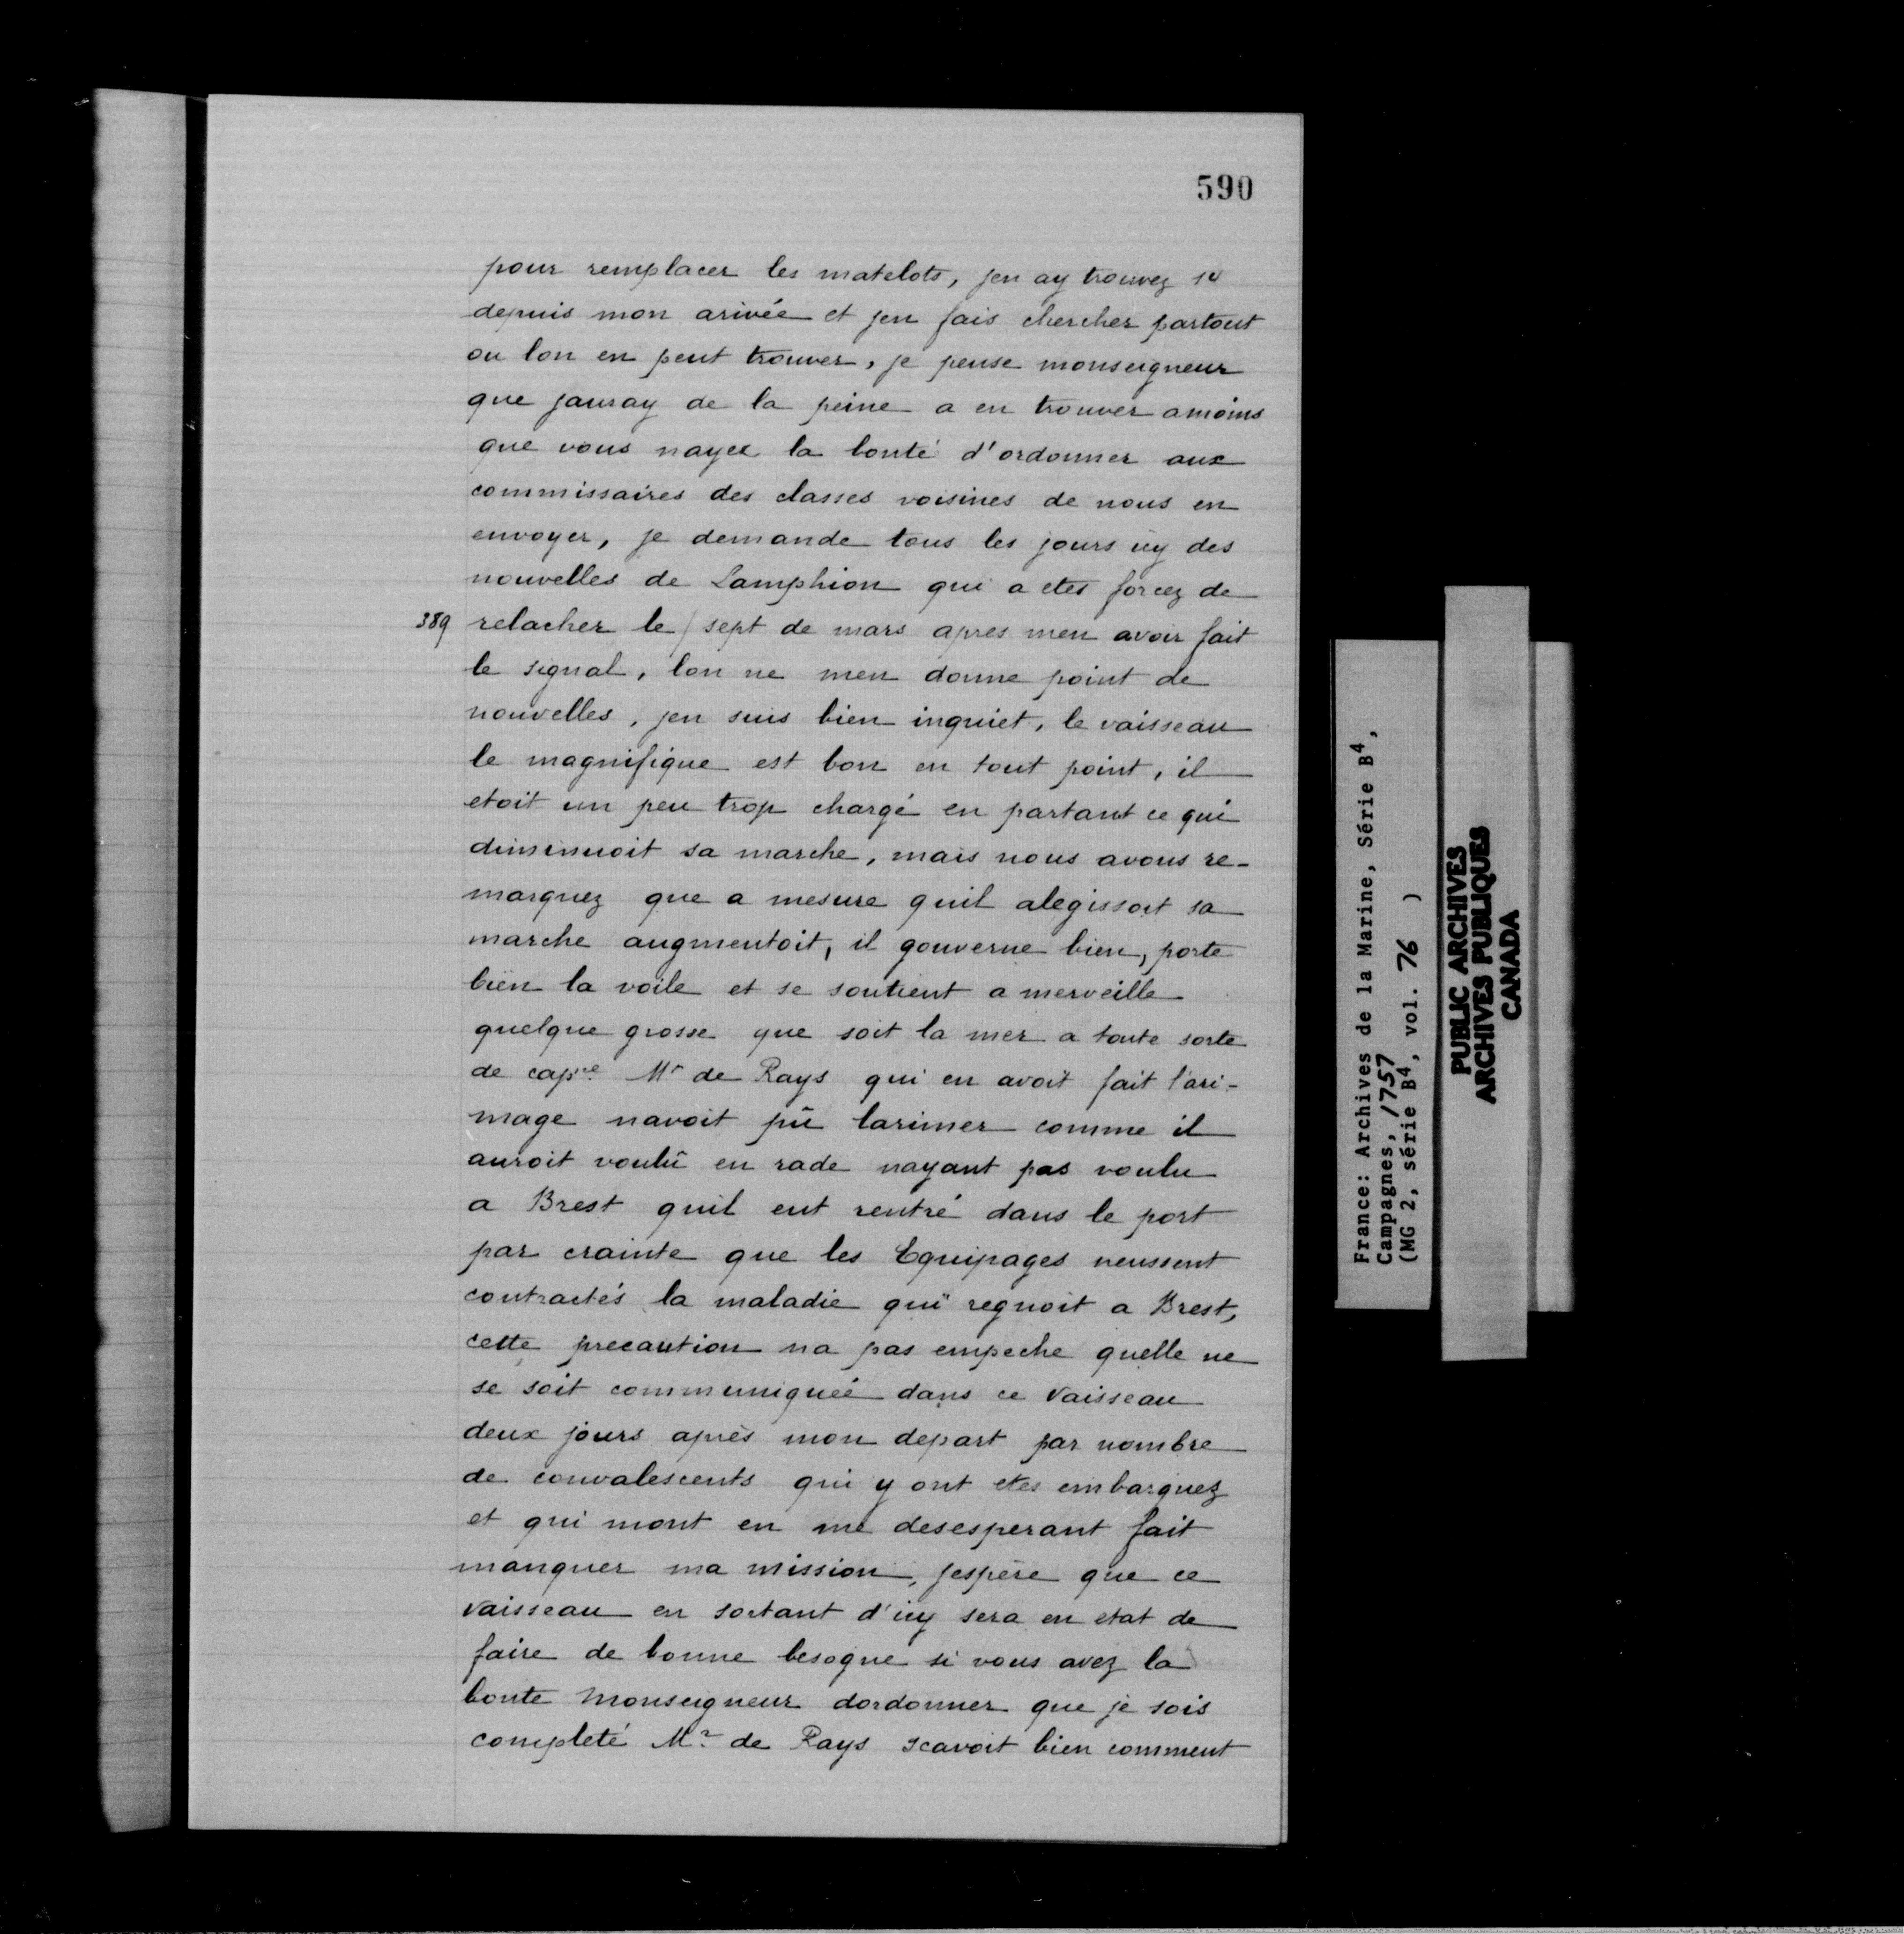 590
pour remplacer les matelots, jen ay trouvez 14
depuis mon arivée et jen fais chercher partout
ou lon en peut trouver, je pense monseigneur
que jauray de la peine a en trouver amoins
que vous nayez la bonté d'ordonner aux
commissaires des classes voisines de nous en
envoyer, je demande tous les jours icy des
nouvelles de Lamphion qui a etes forcez de
389 relacher le / sept de mars apres men avoir fait
le signal, lon ne men donne point de
nouvelles, jen suis bien inquiet, le vaisseau
le magnifique est bon en tout point, il
etoit un peu trop chargé en partant ce qui
diminuoit sa marche, mais nous avons re-
marquez que a mesure quil alegissoit sa
marche augmentoit, il gouverne bien, porte
bien la voile et se soutient a merveille
quelque grosse que soit la mer a toute sorte
de cap.re Mr de Rays qui en avoit fait l'ari-
mage navoit pû larimer comme il
auroit voulû en rade nayant pas voulu
a Brest quil eut rentré dans le port
par crainte que les Equipages neussent
contractés la maladie qui regnoit a Brest,
cette precaution na pas empeche quelle ne
se soit communiqueé dans ce vaisseau
deux jours après mon depart par nombre
de convalescents qui y ont etes embarquez
et qui mont en me desesperant fait
manquer ma mission, jespère que ce
vaisseau en sortant d'icy sera en etat de
faire de bonne besogne si vous avez la
bonte Monseigneur dordonner que je sois
completé Mr. de Rays scavoit bien comment
France: Archives de la Marine, Série B4,
Campagnes, 1757
(MG 2, série B4, vol. 76 )
PUBLIC ARCHIVES
ARCHIVES PUBLIQUES
CANADA